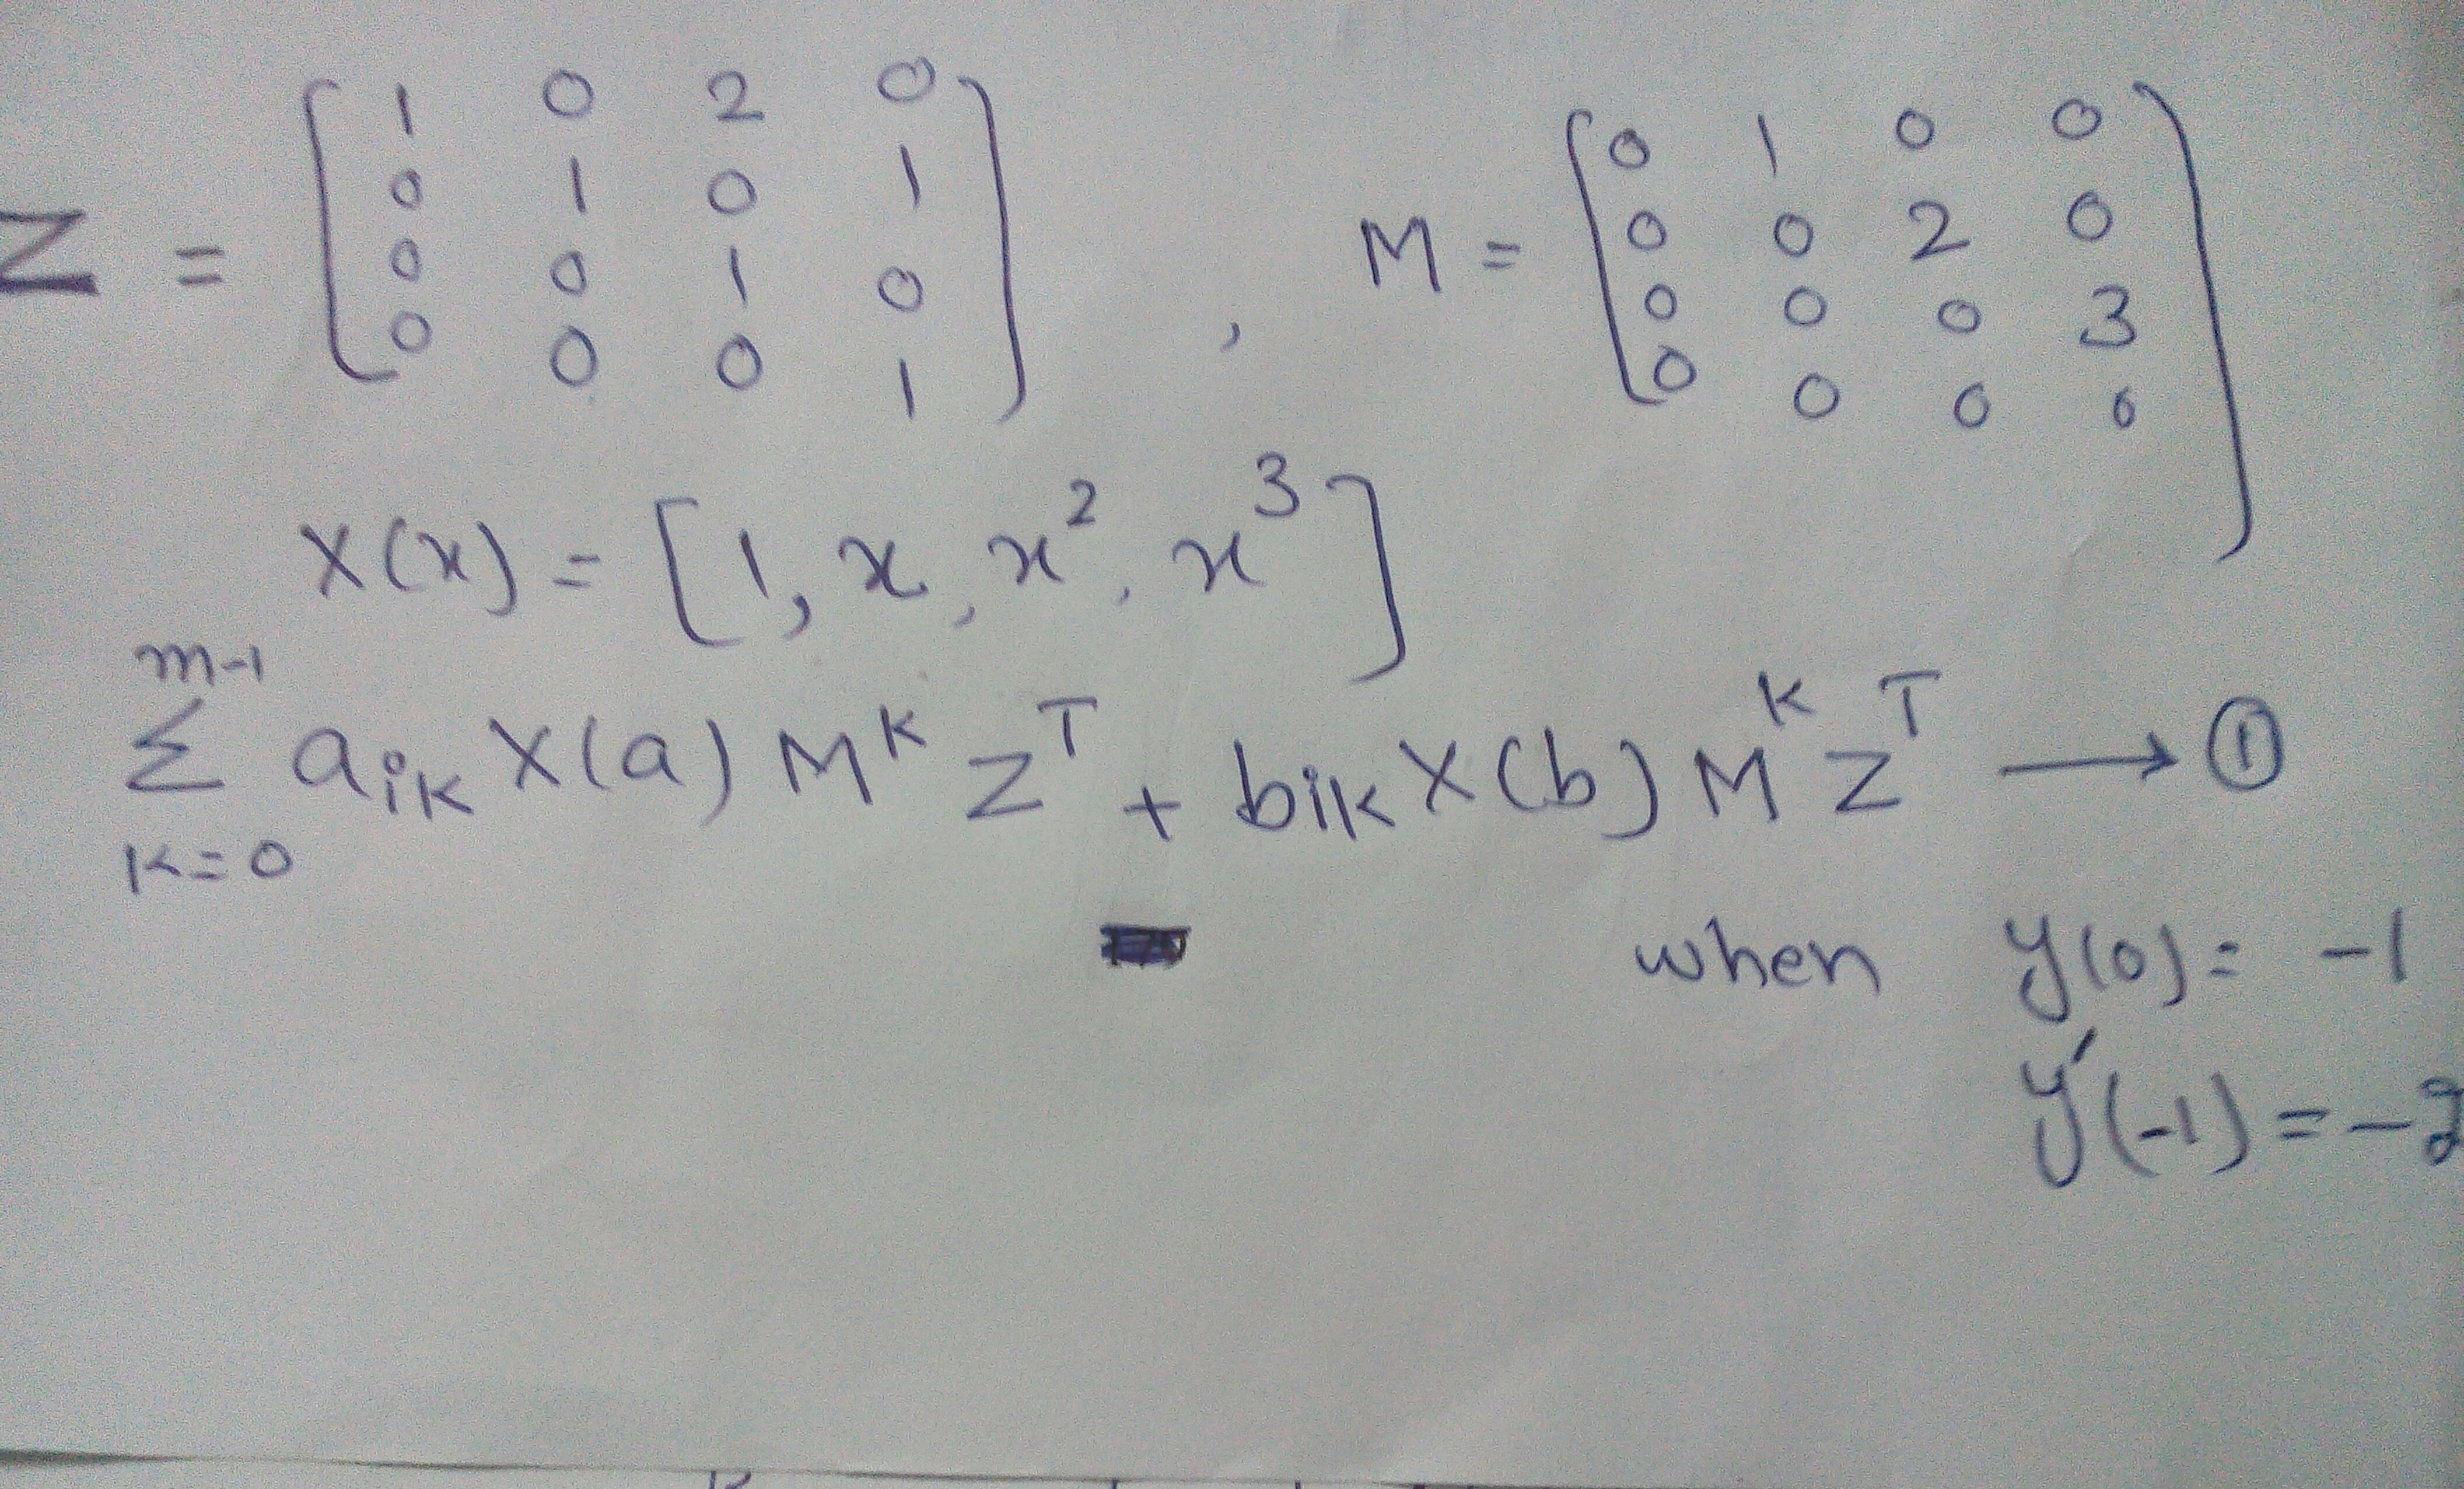 Z = [1 0 2 0
0 1 0 1
0 0 1 0
0 0 0 1] , M = [0 1 0 0
0 0 2 0
0 0 0 3
0 0 0 0]
X(x) = [1, x, x², x³]
m-1
Σ a_{ik} X(a) M^K Z^T + b_{ik} X(b) M^K Z^T → ①
K=0
when y(0) = -1
y'(-1) = -2